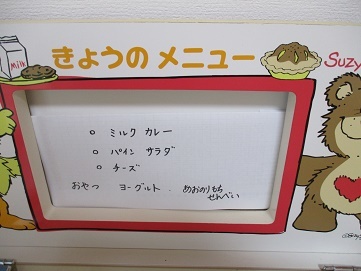 Milk
きょうのメニュー
Suzy
○ ミルク カレー
○ パイン サラダ
○ チーズ
おやつ ヨーグルト . めおのりもち
せんべい